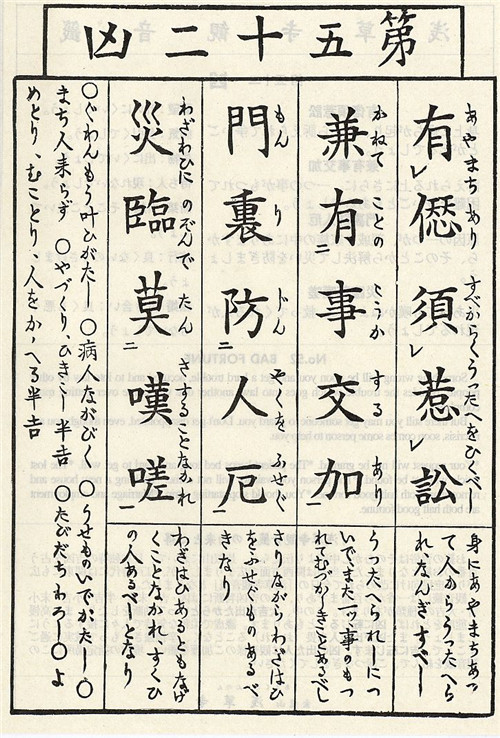 第五十二凶
あやまちあり すべからくうつたへをひくべし
有レ愆須レ惹レ訟
身にあやまちあつ
て人からうつたへら
れ、なんぎすべし
かねて ことの する あり
兼有二事交加一
うつたへられしにつ
いでまた一ツ事のもつ
れてむづかしきことあるべし
もん り じん やくをふせぐ
門裏防二人厄一
さりながらわざはひ
をふせぐものあるべ
きなり
わざわひに のぞんで たん さすることなかれ
災臨莫二嘆嗟一
わざはひあるともなげ
くことなかれ、すくひ
の人あるべしとなり
○ぐわんもう叶ひがたし○病人ながびく ○うせものいでがたし○
まち人来らず ○やづくり、ひきこし半吉 ○たびだちわろし○よ
めとり、むことり、人をかゝへる半吉